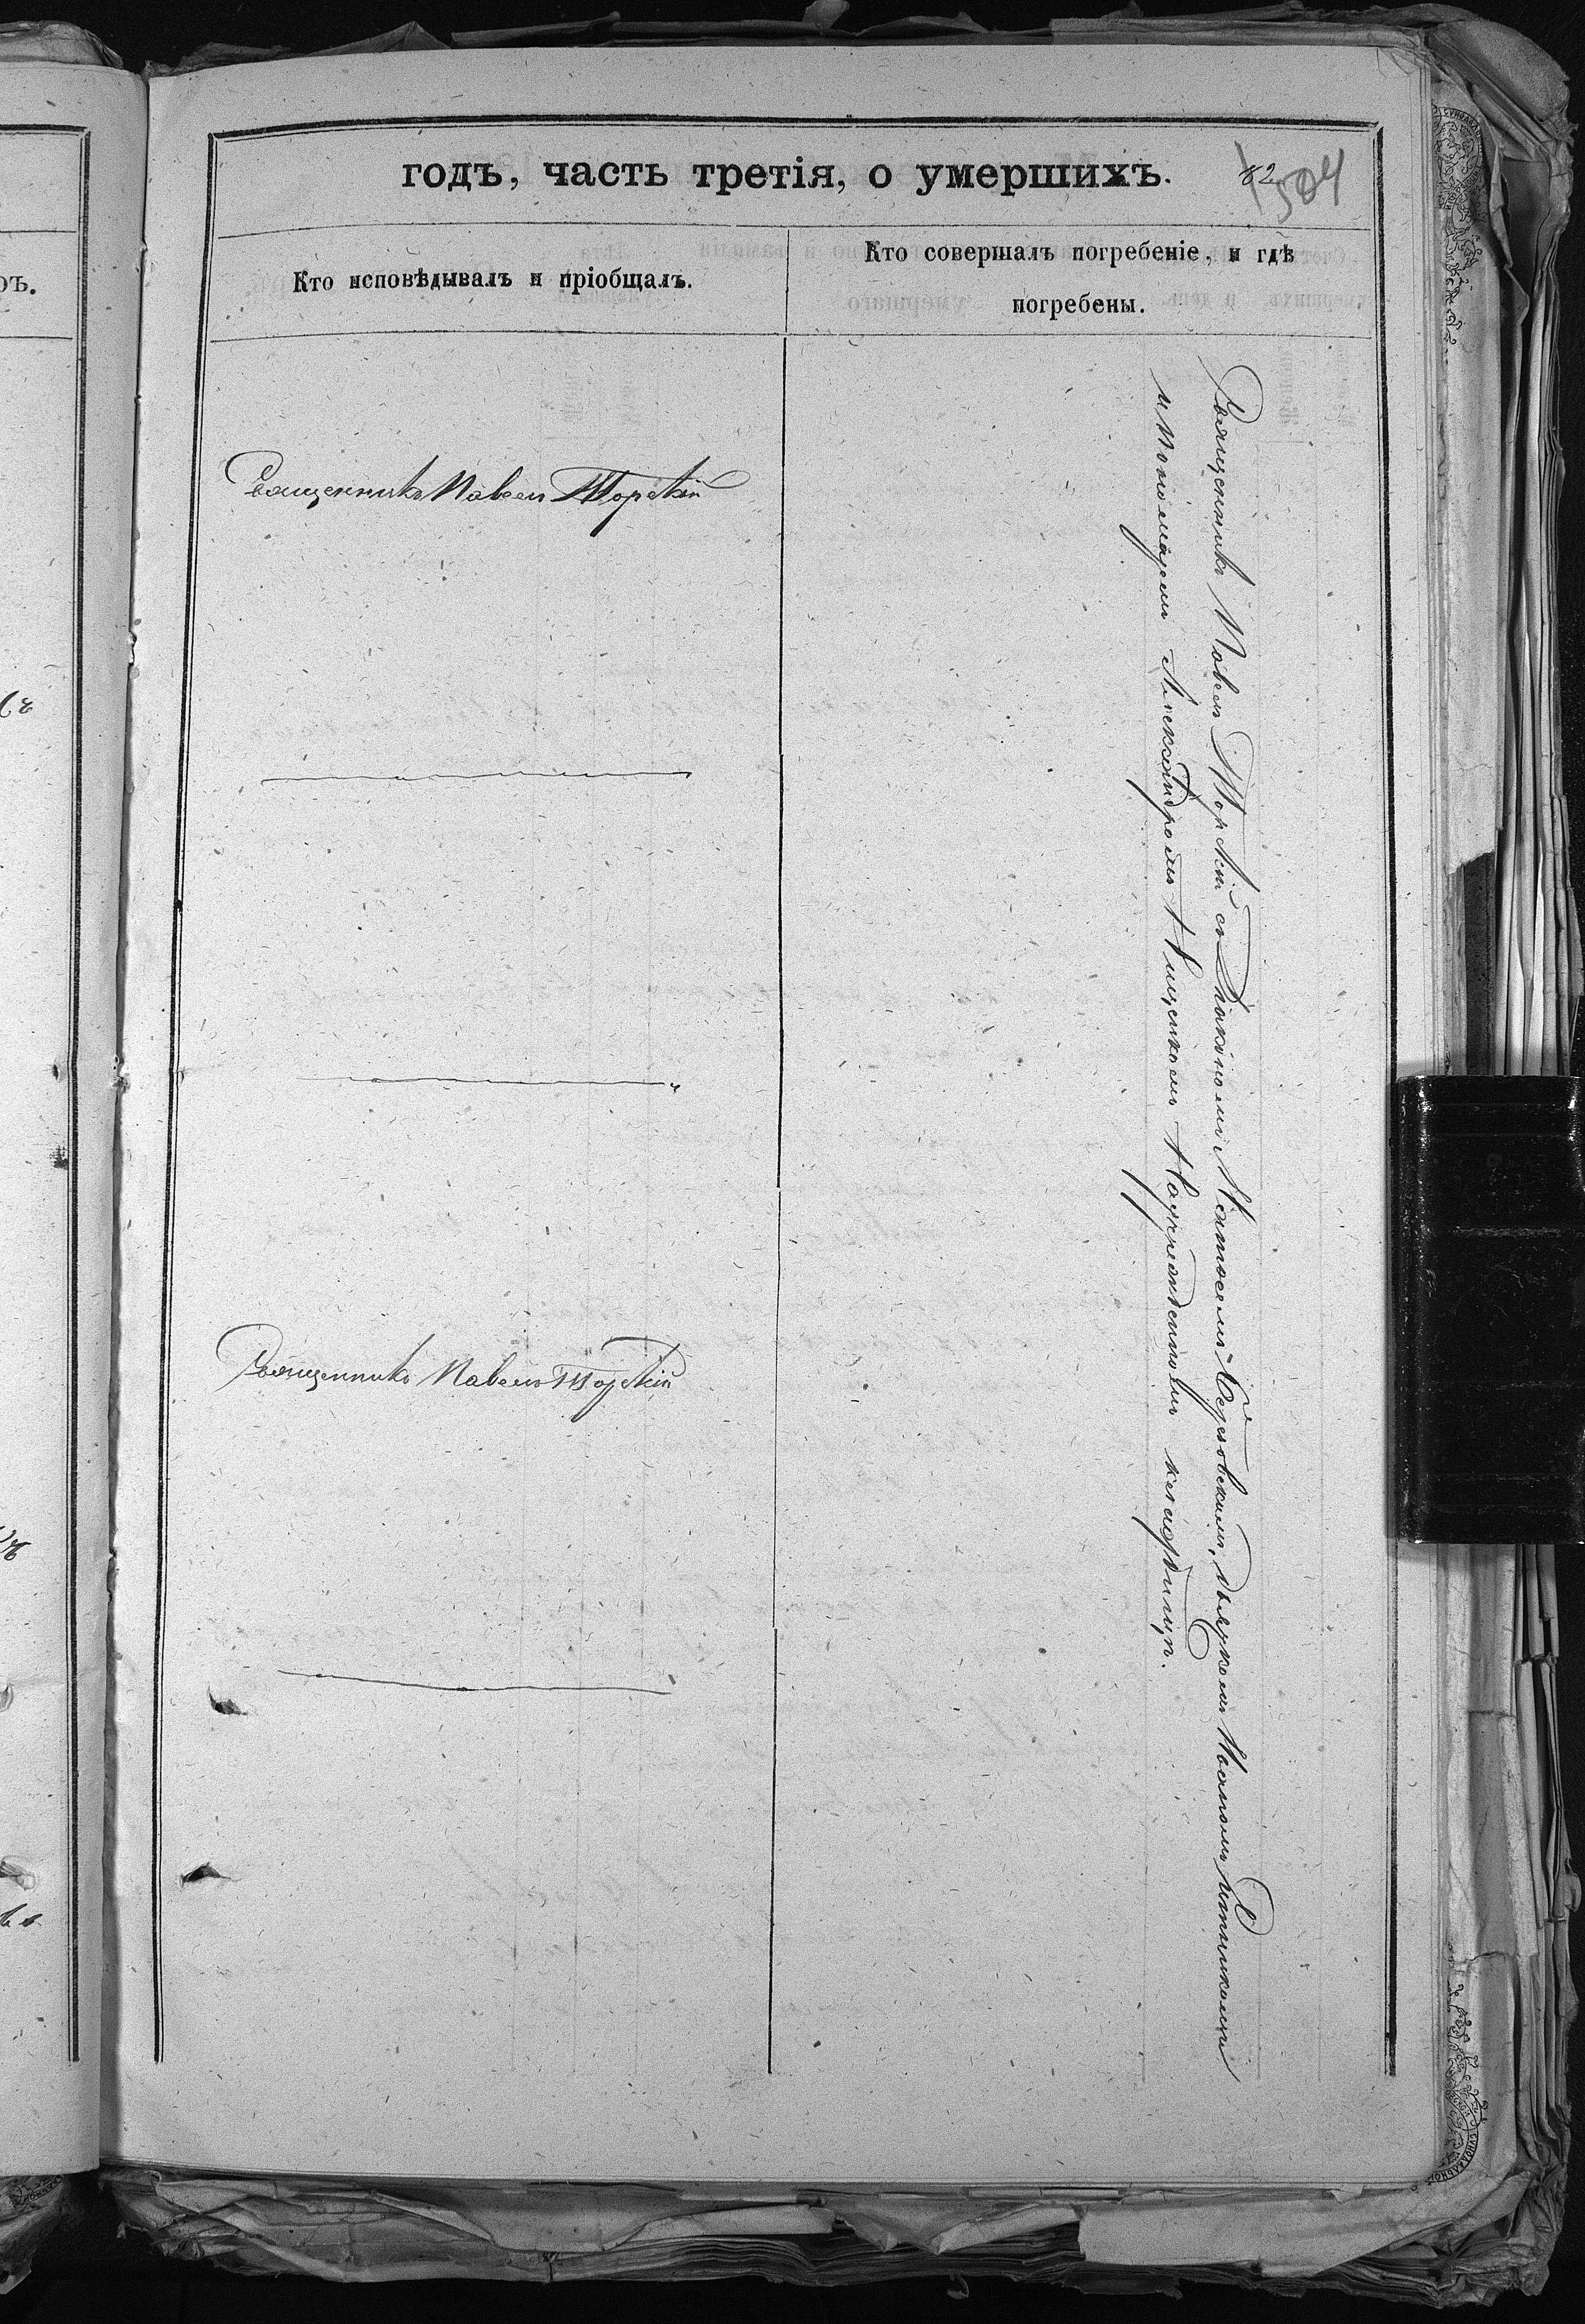 годъ, часть третія, о умершихъ.
82
504
Кто исповѣдывалъ и пріобщалъ.
Кто совершалъ погребеніе, и гдѣ
погребены.
Священникъ Павелъ Торскій
Священникъ Павелъ Торскій
Священникъ Павелъ Торскій съ Діакономъ Дьячкомъ Иваномъ
и Пономаремъ Александромъ на кладбищѣ.